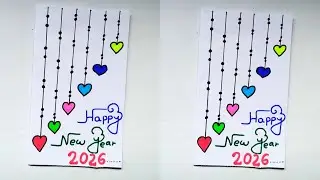 Happy
New Year
2026......
Happy
New Year
2026......